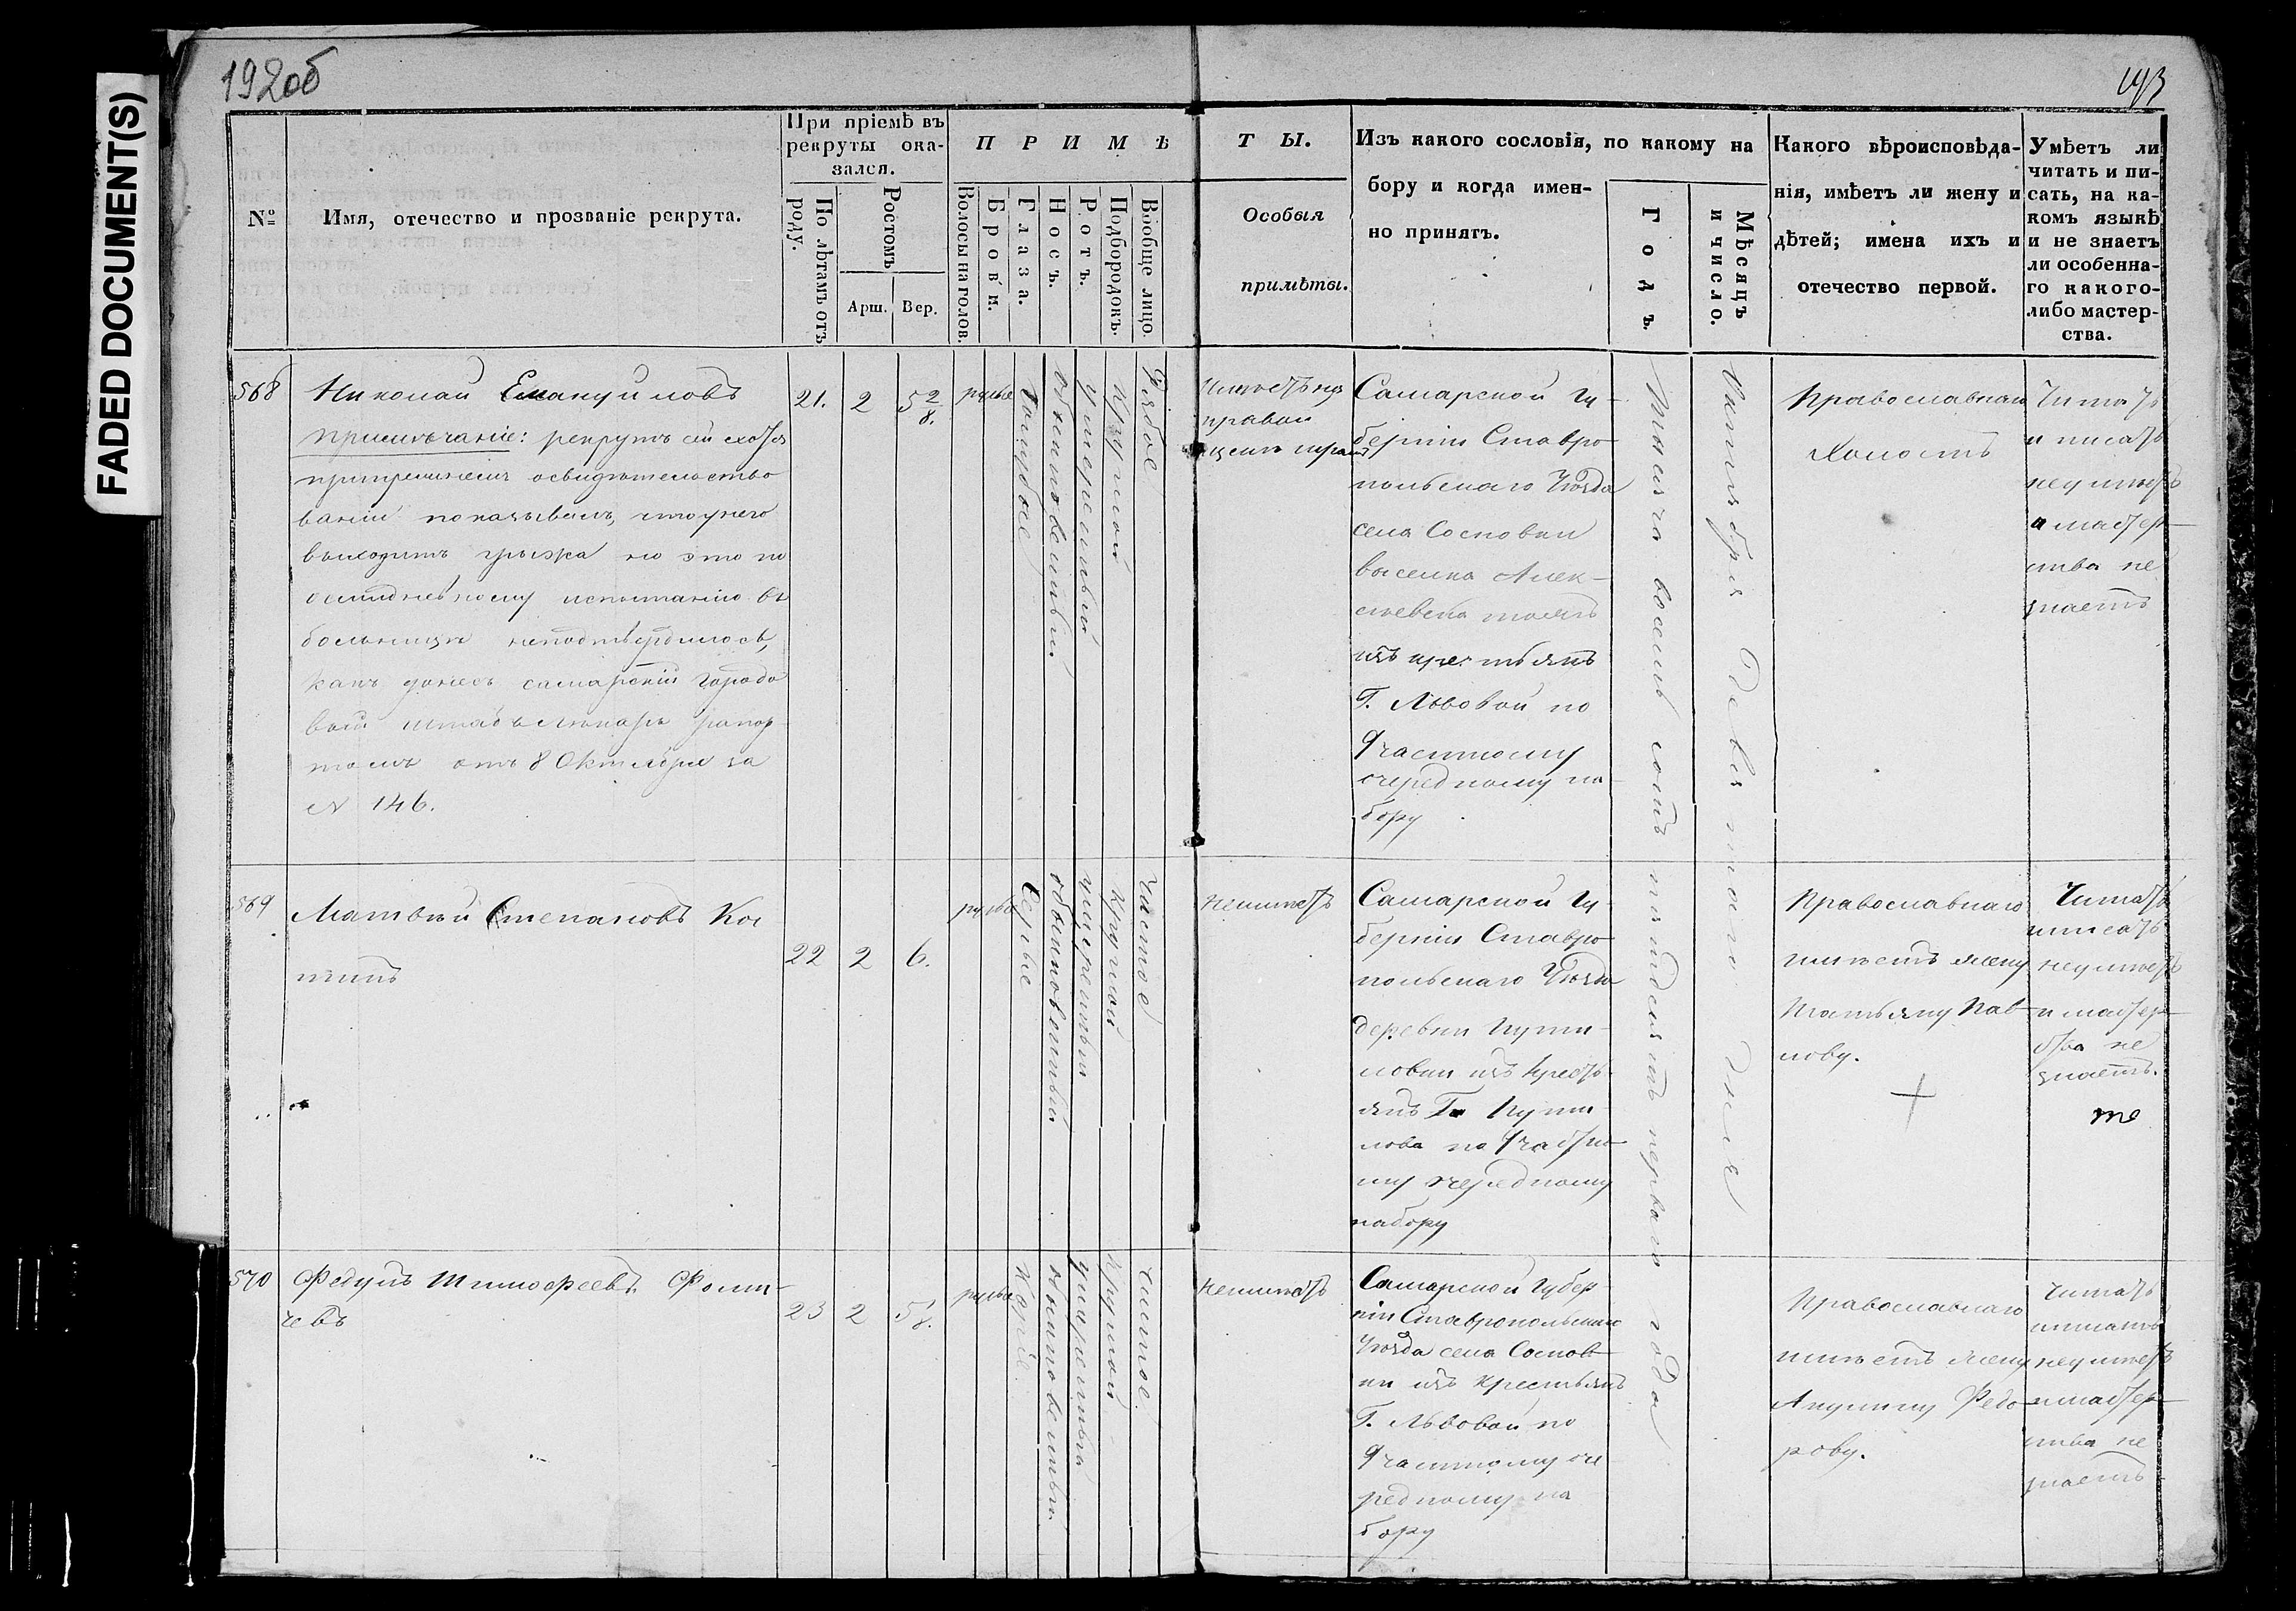 FADED DOCUMENT(S)
192об
193
№
Имя, отечество и прозваніе рекрута.
При пріемѣ въ
рекруты ока-
зался.
По лѣтамъ отъ
роду.
Ростомъ
Арш.
Вер.
ПРИМѢ
Волосы на голов.
Брови.
Глаза.
Носъ.
Ротъ.
Подбородокъ.
Вообще лицо.
ТЫ.
Особыя
примѣты.
Изъ какого сословія, по какому на
бору и когда имен-
но принятъ.
Годъ.
Мѣсяцъ
и число.
Какого вѣроисповѣда-
нія, имѣетъ ли жену и
дѣтей; имена ихъ и
отечество первой.
Умѣетъ ли
читать и пи-
сать, на ка-
комъ языкѣ
и не знаетъ
ли особенна-
го какого-
либо мастер-
ства.
568
Николай Емануиловъ
примѣчаніе: рекрутъ сей
освидѣтельство
ваніи показывалъ, что у него
выходитъ грыжа но это по
испытанію въ
больницѣ неподтвердилось,
какъ донесъ самарскій городо
вой штабъ лекарь рапор
томъ отъ 8 Октября за
№ 146.
21.
2
5 2/8.
русые
голубые
обыкновенный
умеренный
круглой
Рябое
правой
Самарской Гу-
берніи Ставро
польскаго Уѣзда
села Сосновки
выселка Алек-
сѣевска тожъ
изъ крестьянъ
Г. Львовой по
Участному
очередному на
бору
Тысяча восемь сотъ пятьдесятъ перваго года
Октября Девятаго дня
Православнаго
Холостъ
Читать
и писать
неумѣетъ
и мастер-
ства не
знаетъ
569
Матвѣй Степановъ Ко-
22
2
6.
русые
Серые
обыкновенный
умеренный
круглой
чистое
неимѣетъ
Самарской Гу-
берніи Ставро
польскаго Уѣзда
деревни Пути-
ловки изъ крестьянъ
янъ Г. Пути
лова по Участно
му очередному
набору
Православнаго
имѣетъ жену
Татьяну Пав-
лову.
Читать
и писать
неумѣетъ
и мастер-
ства не
знаетъ.
570
Федулъ Тимофеевъ Фоми-
чевъ
23
2
5 1/8.
русые
Каріе
обыкновенный
умеренный
круглой
чистое.
неимѣетъ
Самарской Губер
ніи Ставропольскаго
Уѣзда села Соснов
ки изъ крестьянъ
Г. Львовой по
Участному оче
редному на
бору
Православнаго
имѣетъ жену
Акулину Федо-
рову.
Читать
и писать
неумѣетъ
и мастер-
ства не
знаетъ